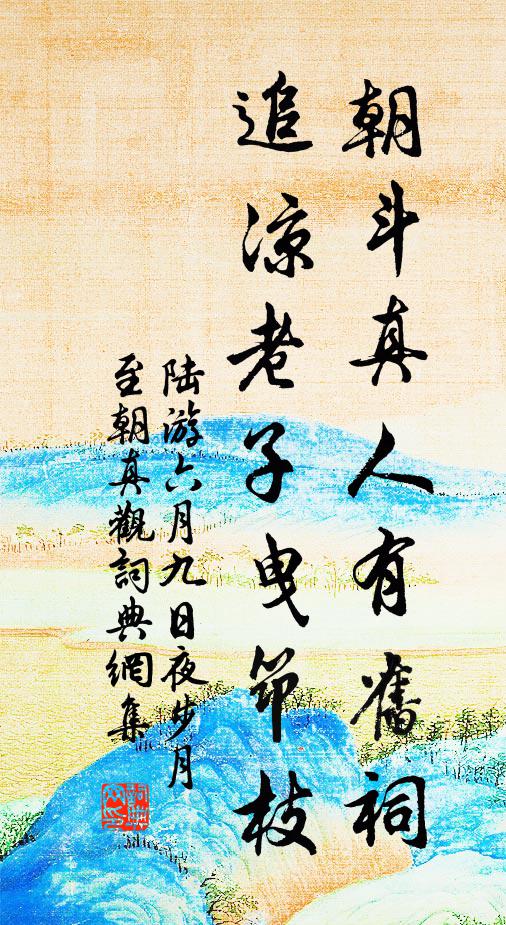 朝斗真人有舊祠
追涼老子曳笻枝
陆游六月九日夜步月
至朝真觀詞典網集